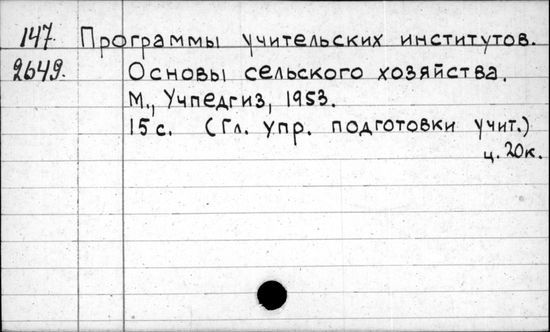 147. Программы учительских институтов.
2649. Основы сельского хозяйства.
М., Учпедгиз, 1953.
15 с. (Гл. упр. подготовки учит.)
ц. 20к.